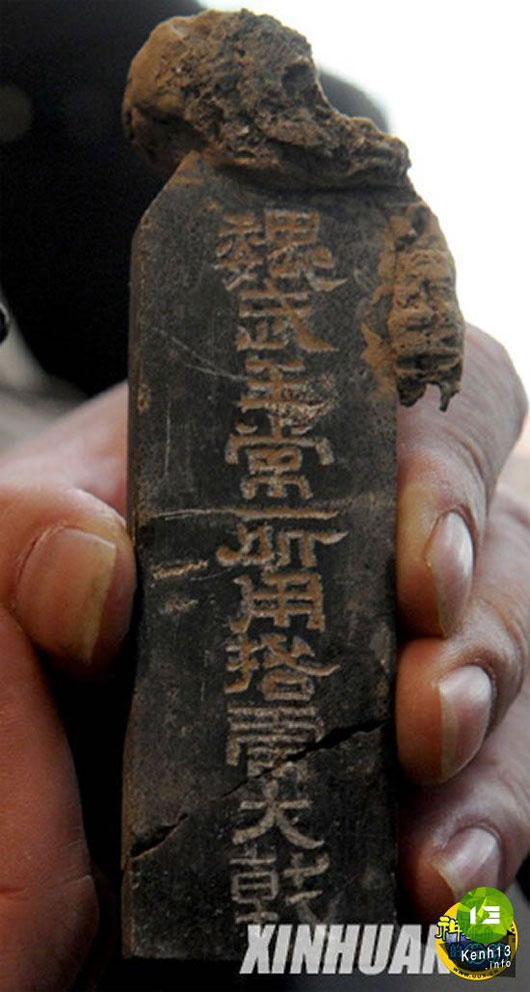 魏武王常所用挌虎大戟
XINHUAN
13
Kenh13
.info